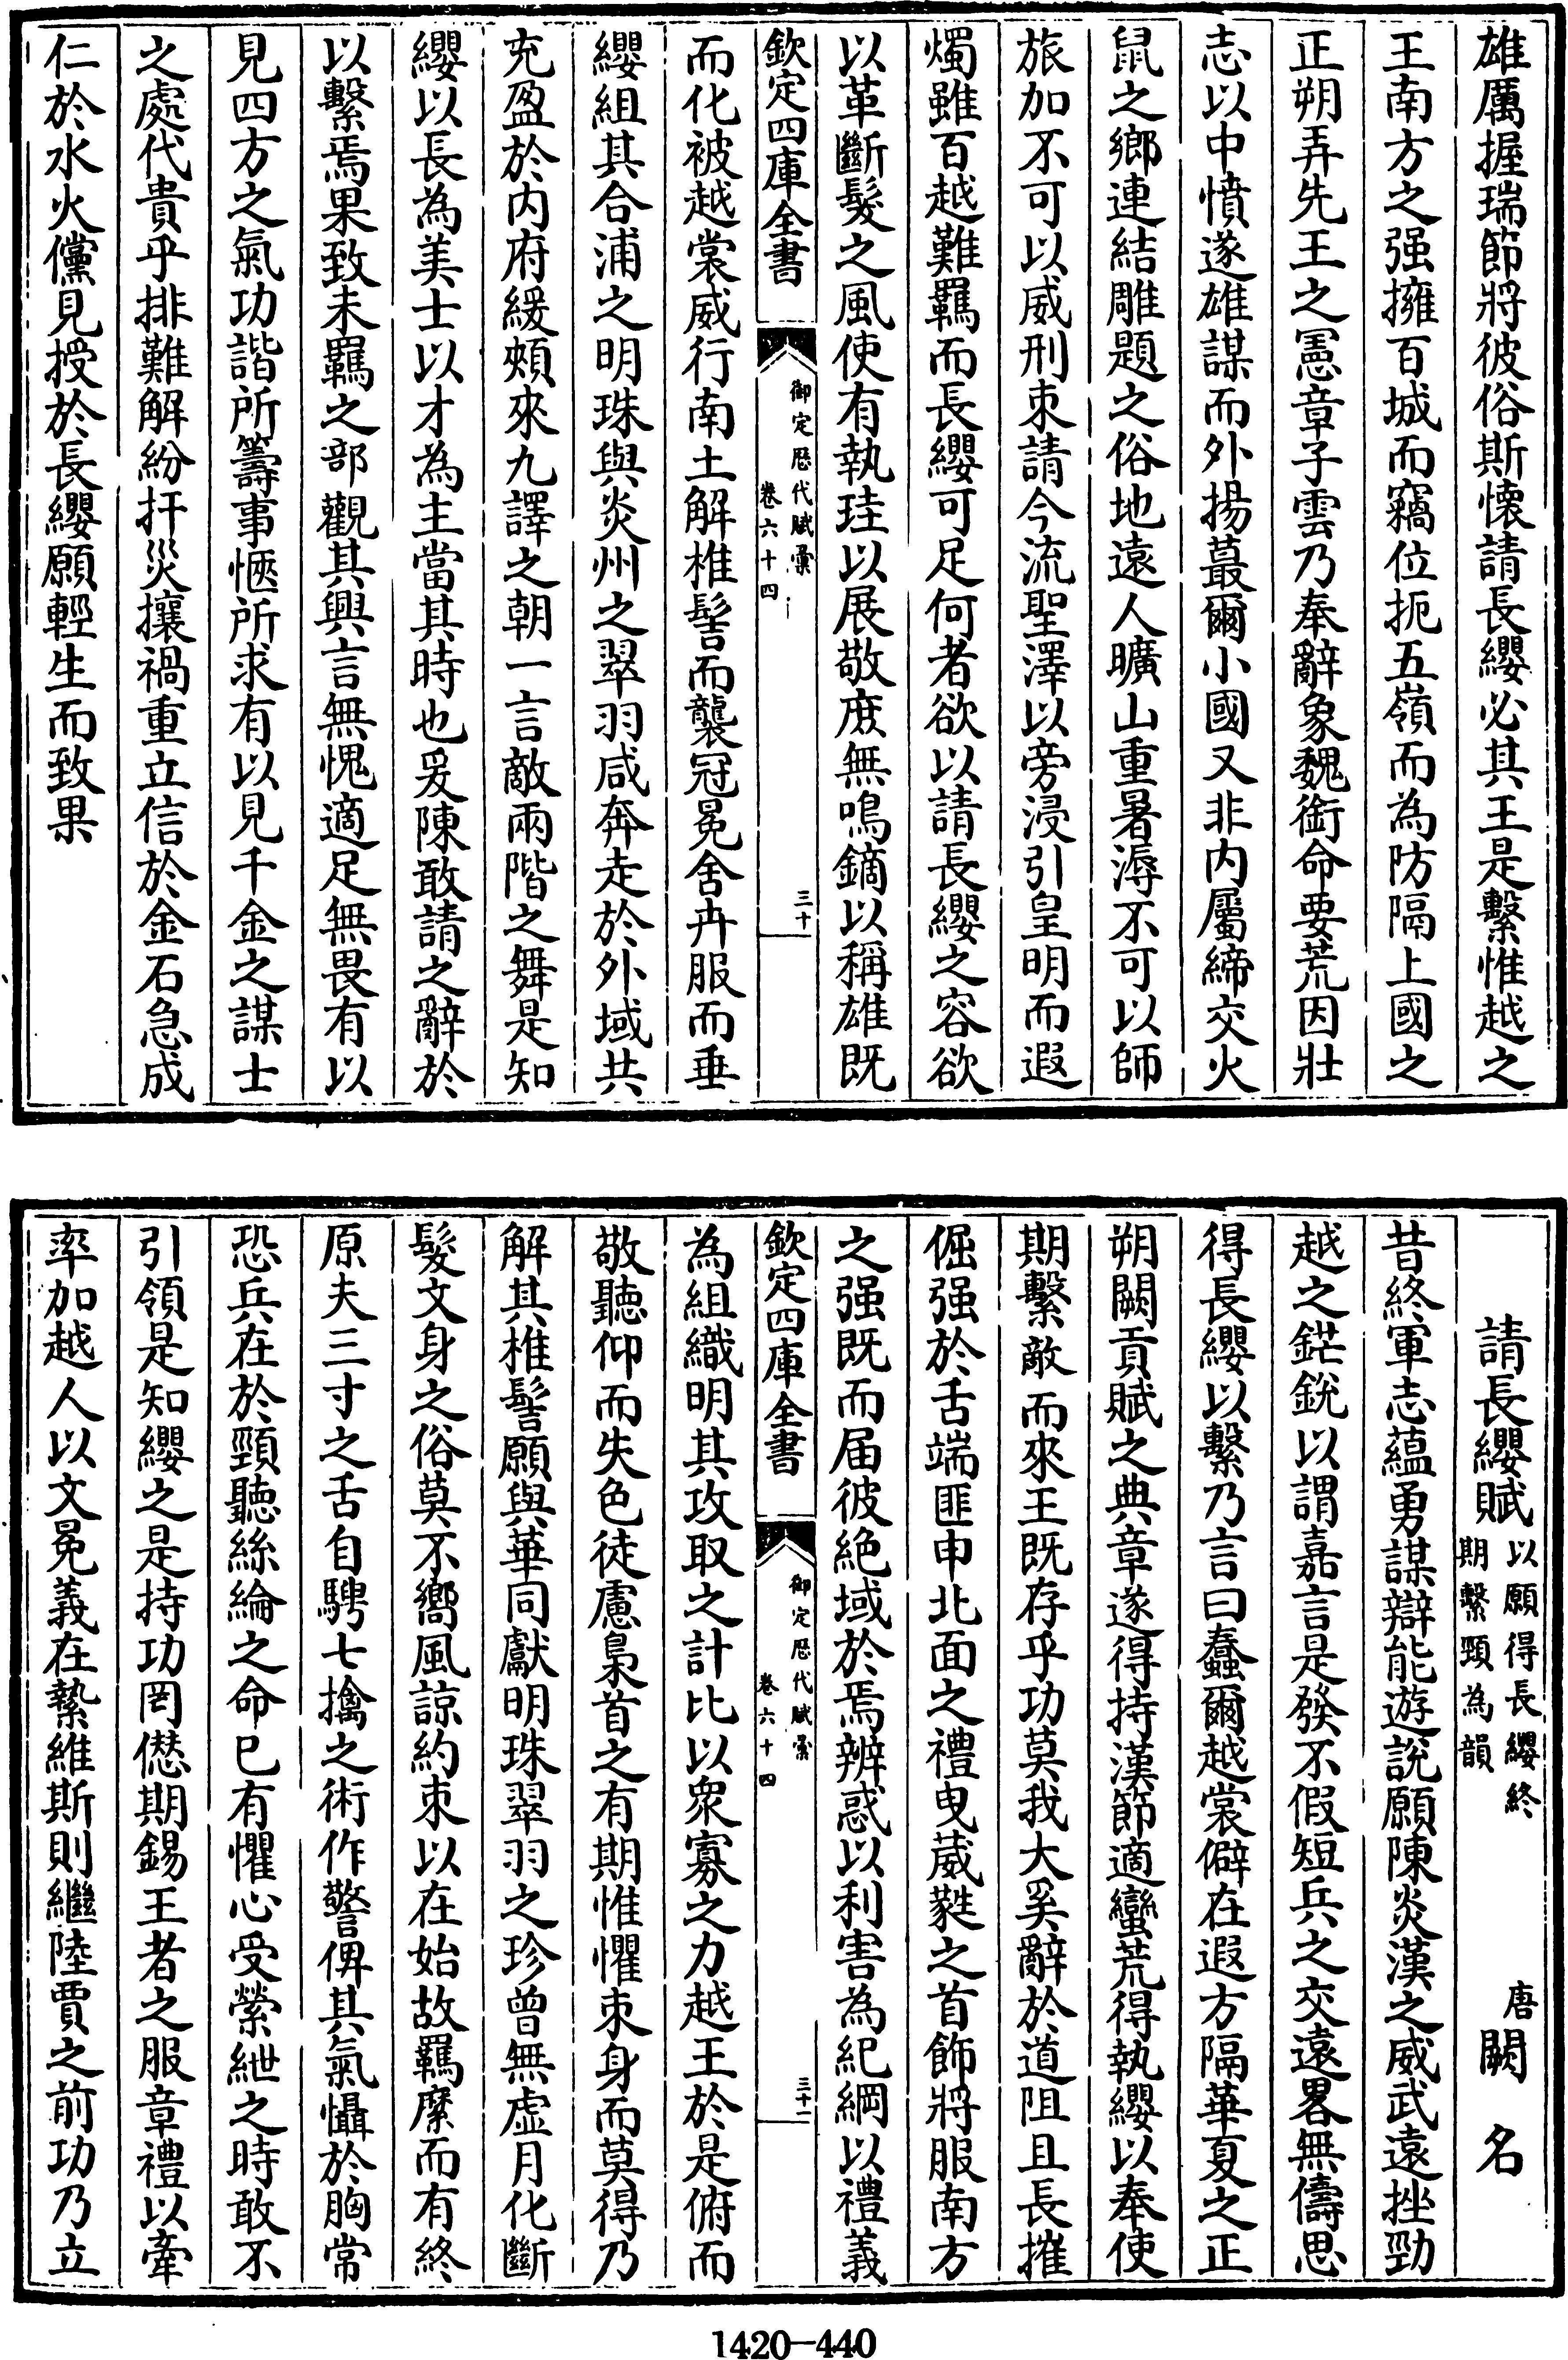 雄厲握瑞節將彼俗斯懷請長纓必其王是繫惟越之
王南方之强擁百城而竊位扼五嶺而為防隔上國之
正朔弄先王之憲章子雲乃奉辭象魏銜命要荒因壯
志以中憤遂雄謀而外揚蕞爾小國又非内屬締交火
鼠之鄉連結雕題之俗地遠人曠山重暑溽不可以師
旅加不可以威刑束請今流聖澤以旁浸引皇明而遐
燭雖百越難羈而長纓可足何者欲以請長纓之容欲
以革斷髮之風使有執珪以展敬庶無鳴鏑以稱雄既
欽定四庫全書
御定歷代賦彙
卷六十四
三十
而化被越裳威行南土解椎髻而襲冠冕舍卉服而垂
纓組其合浦之明珠與炎州之翠羽咸奔走於外域共
充盈於内府緩頰來九譯之朝一言敵兩階之舞是知
纓以長為美士以才為主當其時也爰陳敢請之辭於
以繫焉果致未羈之部觀其興言無愧適足無畏有以
見四方之氣功諧所籌事愜所求有以見千金之謀士
之處代貴乎排難解紛扞災攘禍重立信於金石急成
仁於水火儻見授於長纓願輕生而致果
請長纓賦
以願得長纓終
期繫頸為韻
唐
闕名
昔終軍志藴勇謀辯能遊說願陳炎漢之威武遠挫勁
越之鋩銳以謂嘉言是發不假短兵之交遠畧無儔思
得長纓以繫乃言曰蠢爾越裳僻在遐方隔華夏之正
朔闕貢賦之典章遂得持漢節適蠻荒得執纓以奉使
期繫敵而來王既存乎功莫我大奚辭於道阻且長摧
倔强於舌端匪申北面之禮曳葳蕤之首飾將服南方
之强既而届彼絶域於焉辨惑以利害為紀綱以禮義
欽定四庫全書
御定歷代賦彙
卷六十四
三十一
為組織明其攻取之計比以衆寡之力越王於是俯而
敬聽仰而失色徒慮梟首之有期惟懼束身而莫得乃
解其椎髻願與華同獻明珠翠羽之珍曾無虚月化斷
髮文身之俗莫不嚮風諒約束以在始故羈縻而有終
原夫三寸之舌自騁七擒之術作警俾其氣懾於胸常
恐兵在於頸聽絲綸之命已有懼心受縈紲之時敢不
引領是知纓之是持功罔愆期錫王者之服章禮以牽
率加越人以文冕義在縶維斯則繼陸賈之前功乃立
1420—440